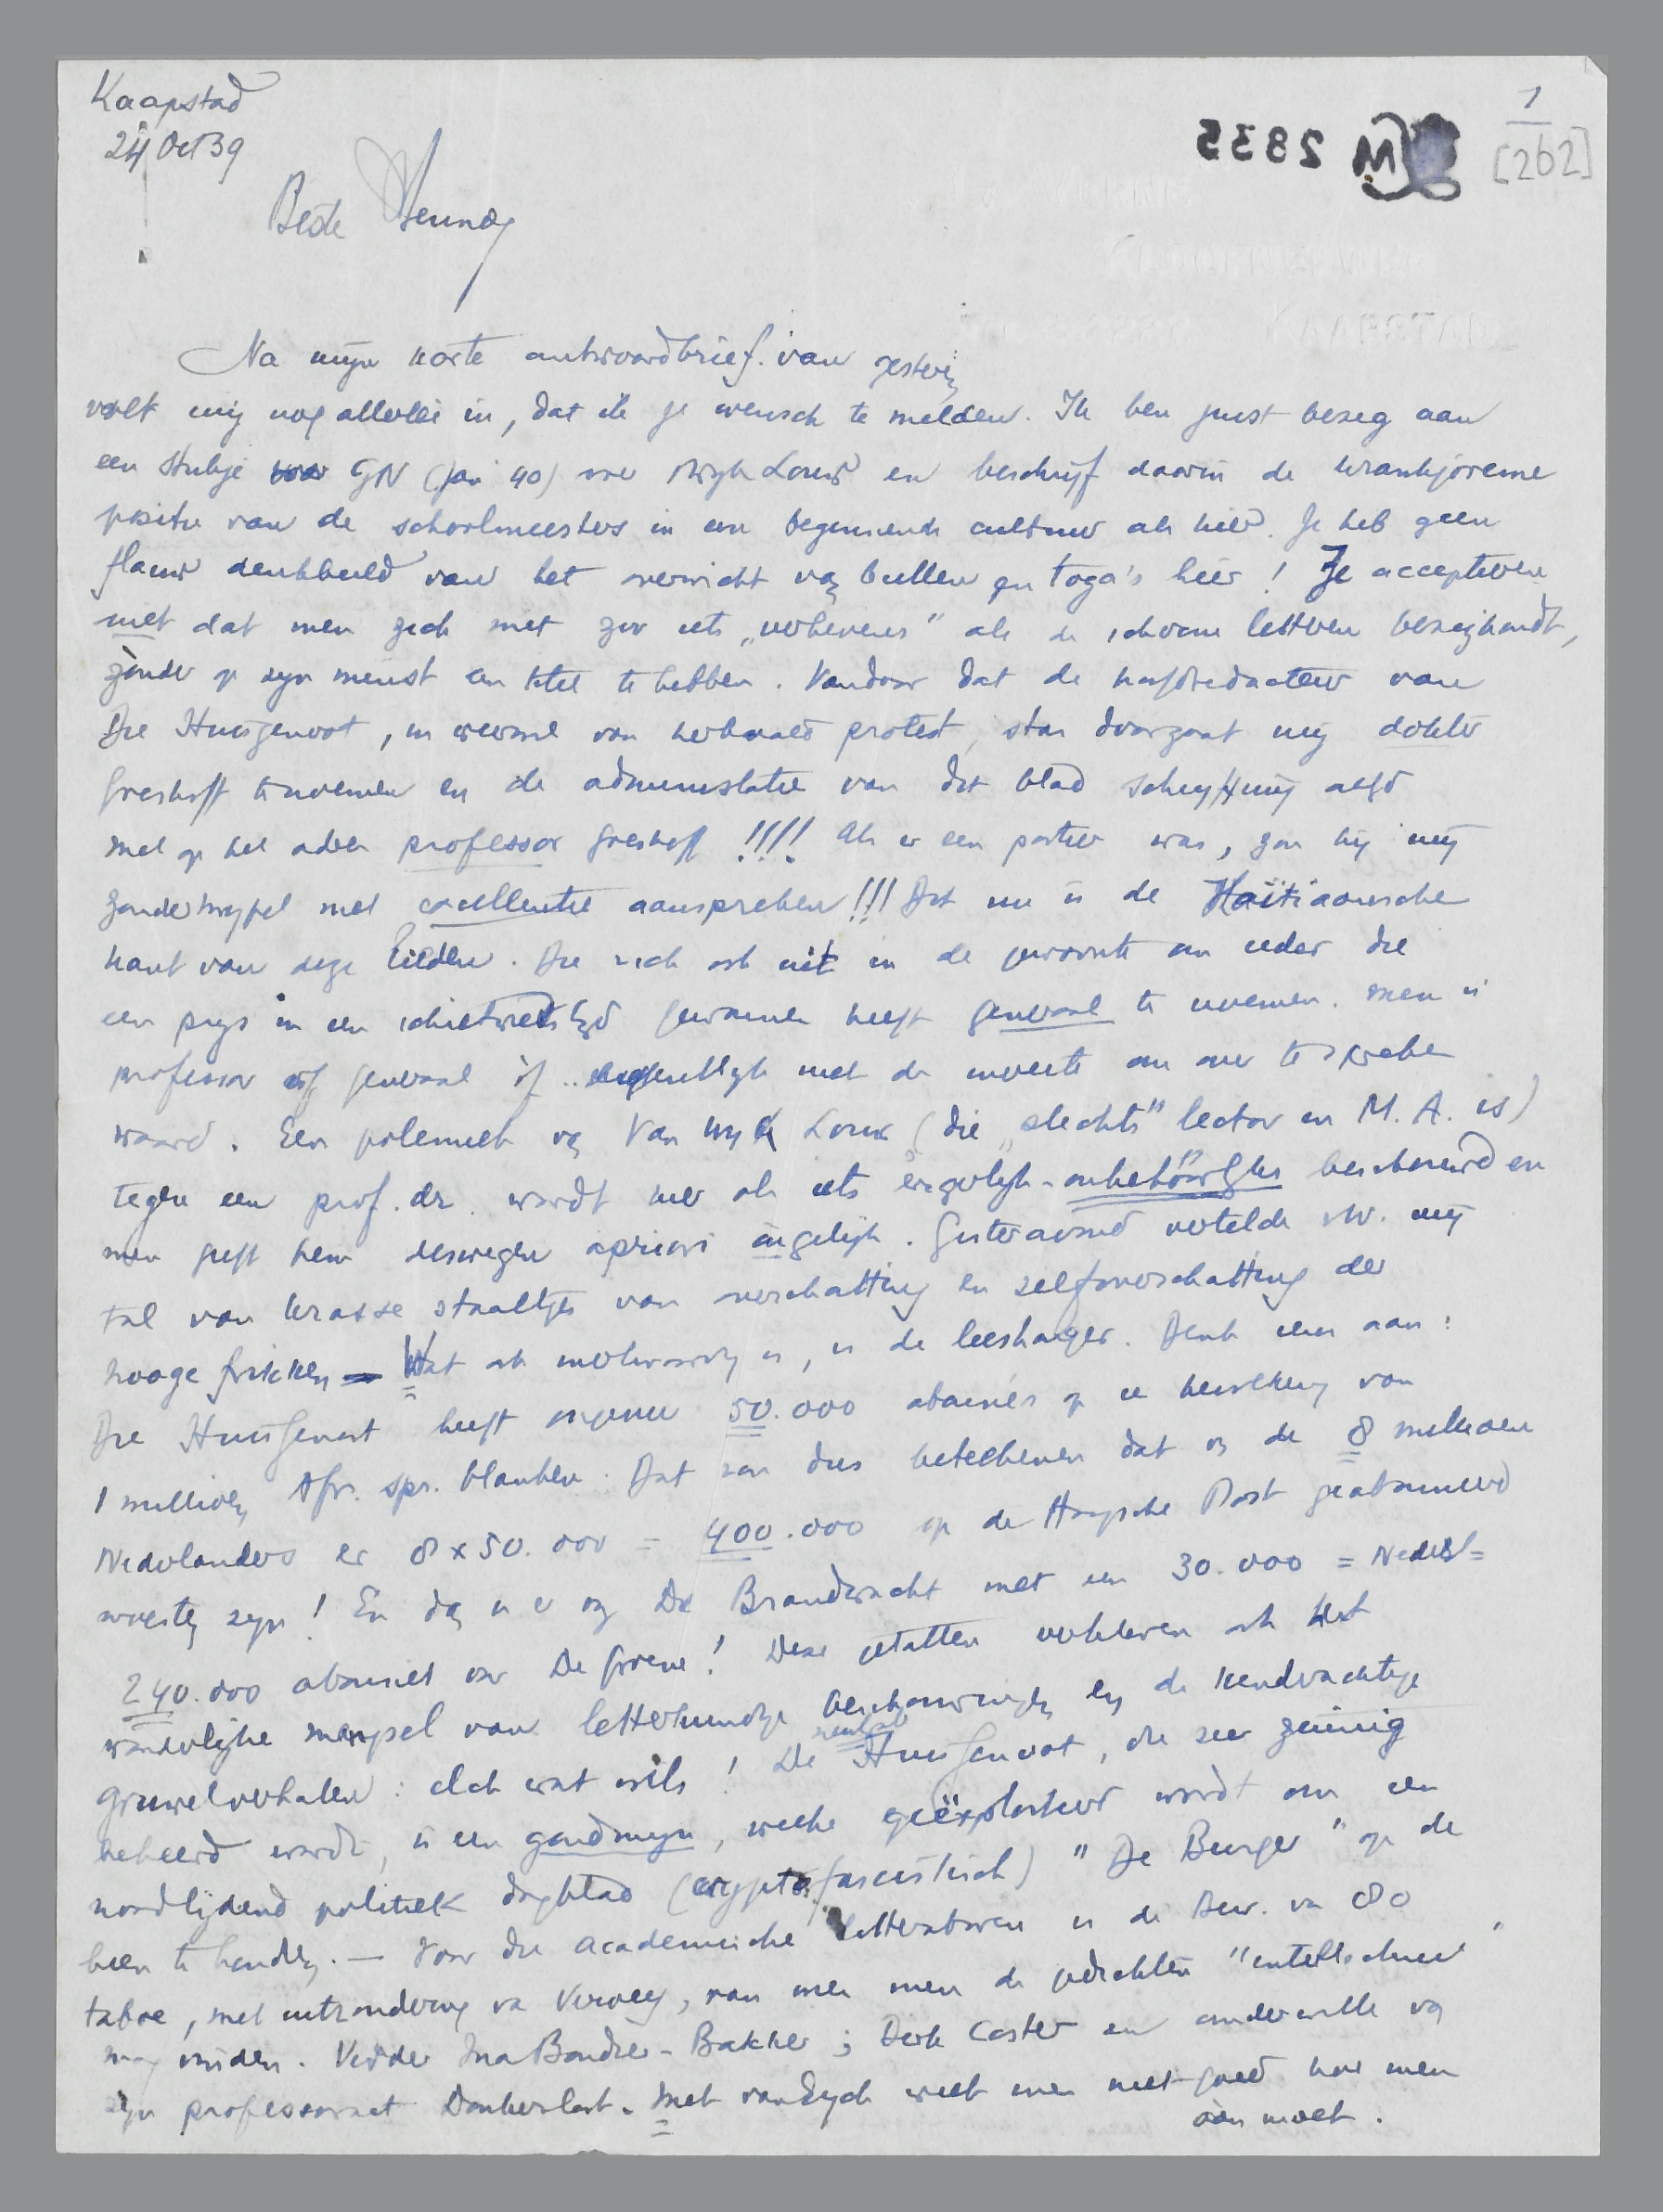 Kaapstad
24 Oct 39
1
[262]
M 2835
Beste Menno,
Na mijn korte antwoordbrief van gisteren
valt mij nog allerlei in, dat ik je wensch te melden. Ik ben juist bezig aan
een stukje voor GN (jan 40) over Wyk Louw en beschrijf daarin de krankjoreme
positie van de schoolmeesters in een beginnende cultuur als hier. Je heb geen
flauw denkbeeld van het overwicht van bullen en toga's hier! Ze accepteren
niet dat men zich met zoo iets „verhevens” als de schoone letteren bezighoudt,
zonder op zijn minst een titel te hebben. Vandaar dat de hoofdredacteur van
Die Huisgenoot, in weerwil van herhaald protest, star doorgaat mij dokter
Greshoff te noemen en de administratie van dit blad schrijft mij altijd
met op het adres professor Greshoff!!!! Als er een portier was, zou hij mij
zonder twijfel met excellentie aanspreken!!! Dit nu is de Haïtiaansche
kant van deze lieden. Die zich ook uit in de gewoonte om ieder die
een prijs in een schietwedstrijd gewonnen heeft generaal te noemen. Men is
professor of generaal òf .. eigenlijk niet de moeite om over te spreken
waard. Een polemiek van Van Wyk Louw (die „slechts” lector en M.A. is)
tegen een prof. dr. wordt hier als iets ergerlijk-onbehoorlijks beschouwd en
men geeft hem deswegen apriori ongelijk. Gisteravond vertelde v.W. mij
tal van krasse staaltjes van overschatting en zelfoverschatting der
hooge frikken — Wat ook merkwaardig is, is de leeshonger. Denk eens aan:
Die Huisgenoot heeft ongeveer 50.000 abonnés op een bevolking van
1 millioen Afr. spr. blanken. Dat zou dus beteekenen dat van de 8 millioen
Nederlanders er 8 x 50.000 = 400.000 op de Haagsche Post geabonneerd
moesten zijn! En dan is er nog Die Brandwacht met een 30.000 = Nederl =
240.000 abonnés voor De Groene! Deze getallen verklaren ook het
wonderlijke mengsel van letterkundige beschouwingen en de kinderachtige
gruwelverhalen: elck wat wils! De Huisgenoot, die zeer zuinig
beheerd wordt, is een goudmijn, welke geëxploiteerd wordt om een
noodlijdend politiek dagblad (crypto fascistisch) “De Burger” op de
been te houden. — Voor die academische litteratoren is de Bew. van 80
taboe, met uitzondering van Verwey, van wien men de gedichten “intellectueel”
mag vinden. Verder Ina Boudier-Bakker; Dirk Coster en om der wille van
zijn professoraat Donkersloot. Met van Eyck weet men niet goed hoe men
aan moet.